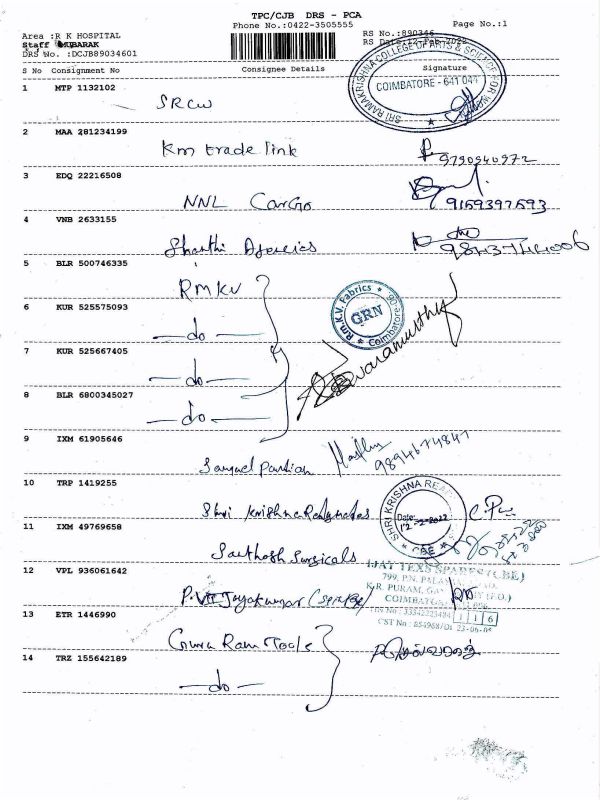 TPC/CJB DRS - PCA
Phone No.:0422-3505555
Page No.:1
Area :R K HOSPITAL
RS No.:890346
Staff MUBARAK
RS Date:12-Feb-2022
DRS No. :DCJB89034601
S No Consignment No Consignee Details Signature
SRI RAMAKRISHNA COLLEGE OF ARTS & SCIENCE FOR
COIMBATORE - 641 044
1 MTP 1132102
SRCW
2 MAA 281234199
Km trade link
9790940972
3 EDQ 22216508
NNL CarGo
9159397593
4 VNB 2633155
Shanthi Agencies
5 BLR 500746335
RMKV
Rm.K.V. Fabrics
GRN
Coimbatore-
6 KUR 525575093
—do—
7 KUR 525667405
—do—
8 BLR 6800345027
—do—
9 IXM 61905646
Samuel Pandian
9894674847
10 TRP 1419255
Shri Krishna Readymades
SHRI KRISHNA
Date:
12-2-2022
CBE
11 IXM 49769658
Santhosh Surgicals
12 VPL 936061642
P.VR Jayakumar
TEXS SPARES (CBE)
799, P.N.
K.R. PURAM,
COIMBATORE
116
CST No :
13 ETR 1446990
Guru Ram Tools
14 TRZ 155642189
—do—